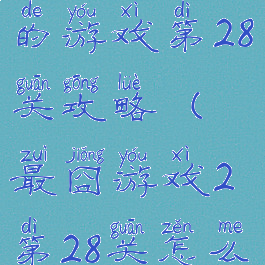 de yóu xì dì
的 游 戏 第 28
guān gōng lüè
关 攻 略 (
zuì jiǒng yóu xì
最 囧 游 戏 2
dì guān zěn me
第 28 关 怎 么